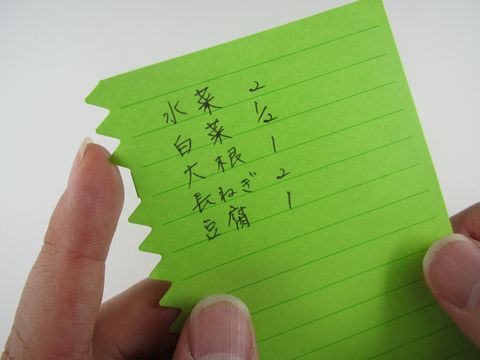 水菜 2
白菜 1/2
大根 1
長ねぎ 2
豆腐 1